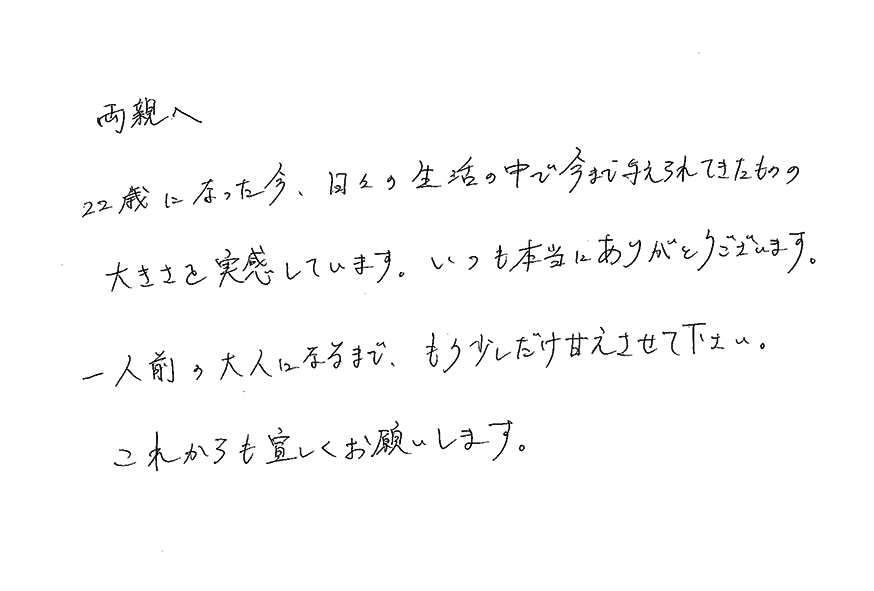 両親へ
22歳になった今、日々の生活の中で今まで与えられてきたものの
大きさを実感しています。いつも本当にありがとうございます。
一人前の大人になるまで、もう少しだけ甘えさせて下さい。
これからも宜しくお願いします。